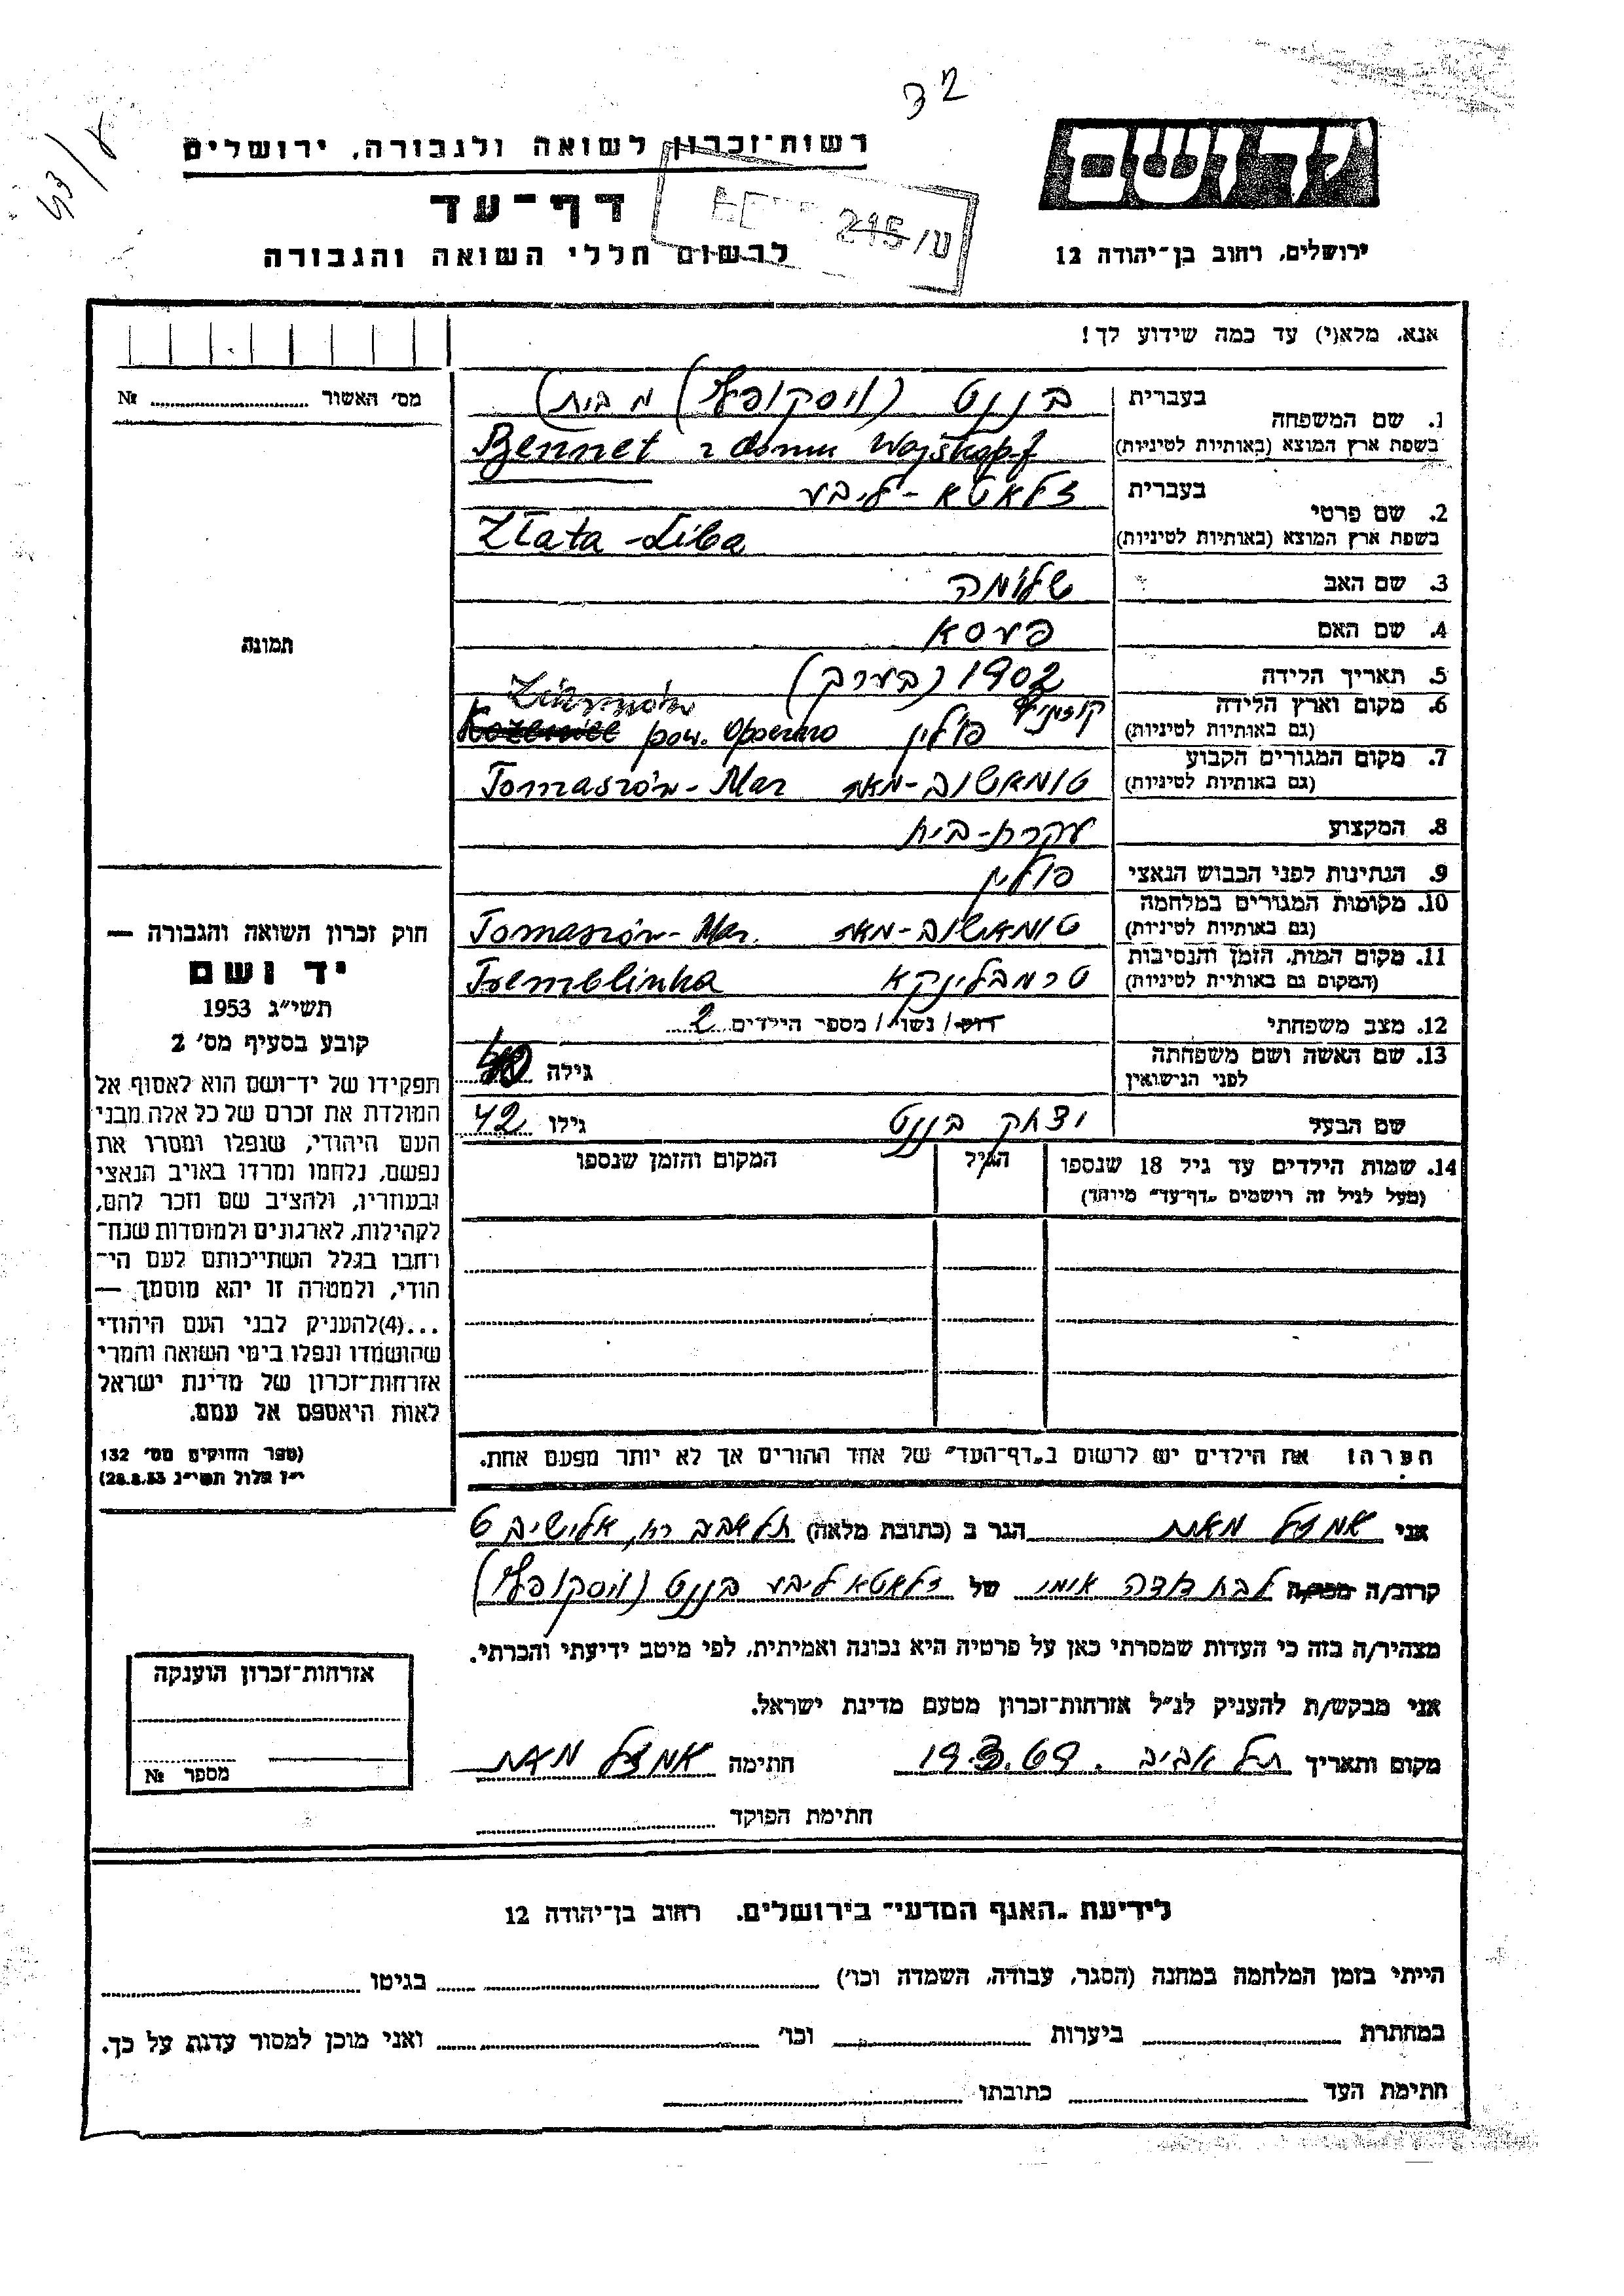 רשות־זכרון לשואה ולגבורה, ירושלים
דף־עד
לרשום חללי השואה והגבורה
ירושלים, רחוב בן־יהודה 12
אנא, מלא(י) עד כמה שידוע לך!
מס׳ האשור № 
1. שם המשפחה
בעברית בננט (וויסקופף) מבית)
בשפת ארץ המוצא (באותיות לטיניות) Bennet z domu Wajskopf
2. שם פרטי
בעברית זלאטא-ליבע
בשפת ארץ המוצא (באותיות לטיניות) Złata-Liba
3. שם האב שלומה
4. שם האם פעסא
תמונה
5. תאריך הלידה 1902 (בערך)
6. מקום וארץ הלידה
(גם באותיות לטיניות) פולין pow. Opoczno
7. מקום המגורים הקבוע
(גם באותיות לטיניות) טומאשוב-מאז Tomaszów-Maz
8. המקצוע עקרת-בית
9. הנתינות לפני הכבוש הנאצי פולין
10. מקומות המגורים במלחמה
(גם באותיות לטיניות) טומאשוב-מאז Tomaszów-Maz.
11. מקום המות, הזמן והנסיבות
(המקום גם באותיית לטיניות) טרמבלינקא Tremblinka
12. מצב משפחתי רוק/ נשוי/ מספר הילדים 2
13. שם האשה ושם משפחתה
לפני הנישואין
גילה
שם הבעל יצחק בננט גילו 42
14. שמות הילדים עד גיל 18 שנספו
(מעל לגיל זה רושמים „דף־עד״ מיוחד)
הגיל
המקום והזמן שנספו
הערה! את הילדים יש לרשום ב„דף־העד״ של אחד ההורים אך לא יותר מפעם אחת.
חוק זכרון השואה והגבורה —
יד ושם
תשי״ג 1953
קובע בסעיף מס׳ 2
תפקידו של יד־ושם הוא לאסוף אל
המולדת את זכרם של כל אלה מבני
העם היהודי, שנפלו ומסרו את
נפשם, נלחמו ומרדו באויב הנאצי
ובעוזריו, ולהציב שם וזכר להם,
לקהילות, לארגונים ולמוסדות שנח־
רחבו בגלל השתייכותם לעם הי־
הודי, ולמטרה זו יהא מוסמך. —
...(4)להעניק לבני העם היהודי
שהושמדו ונפלו בימי השואה והמרי
אזרחות־זכרון של מדינת ישראל
לאות היאספם אל עמם.
(ספר החוקים מס׳ 132
י״ז אלול תשי״ג 28.8.53)
אני אמזל מאת הגר ב (כתובת מלאה) תל אביב רח, אלישיב 
קרוב/ה לבת דודה אימי של זלאטא ליבע בננט (וויסקופף)
מצהיר/ה בזה כי העדות שמסרתי כאן על פרטיה היא נכונה ואמיתית, לפי מיטב ידיעתי והכרתי.
אני מבקש/ת להעניק לנ״ל אזרחות־זכרון מטעם מדינת ישראל.
מקום ותאריך תל אביב. 19.3.69 חתימה אמזל מאת
חתימת הפוקד
אזרחות־זכרון הוענקה
מספר №
לידיעת „האגף המדעי״ בירושלים. רחוב בן־יהודה 12
הייתי בזמן המלחמה במחנה (הסגר, עבודה, השמדה וכו׳) בגיטו
במחתרת ביערות וכו׳ ואני מוכן למסור עדות על כך.
חתימת העד כתובתו